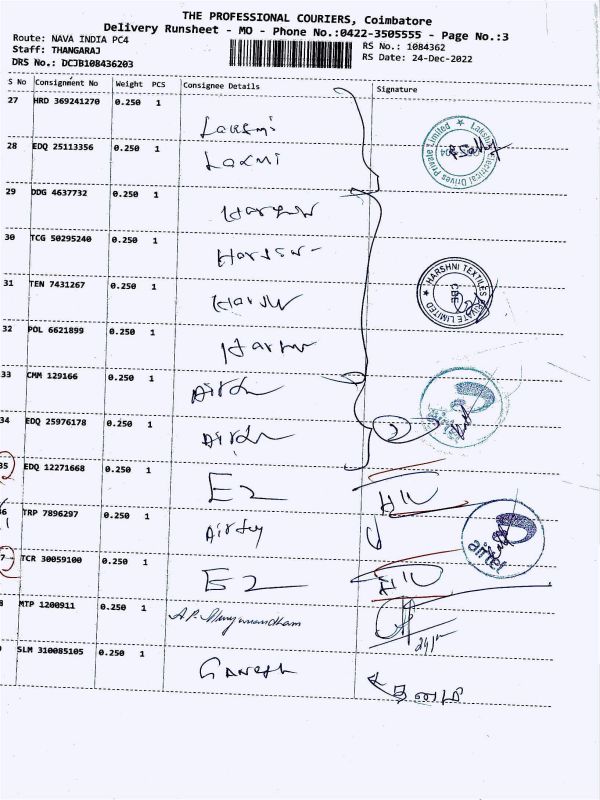 THE PROFESSIONAL COURIERS, Coimbatore
Delivery Runsheet - MO - Phone No.:0422-3505555 - Page No.:3
Route: NAVA INDIA PC4
RS No.: 1084362
Staff: THANGARAJ
RS Date: 24-Dec-2022
DRS No.: DCJB108436203
S No Consignment No Weight PCS Consignee Details Signature
27 HRD 369241270 0.250 1 Laksmi
28 EDQ 25113356 0.250 1 Laxmi
Lakshmi Electrical Drives Private Limited
29 DDG 4637732 0.250 1
30 TCG 50295240 0.250 1
31 TEN 7431267 0.250 1
HARSHNI TEXTILES PRIVATE LIMITED
CBE
32 POL 6621899 0.250 1
33 CMM 129166 0.250 1
34 EDQ 25976178 0.250 1
35 EDQ 12271668 0.250 1 E2
6 TRP 7896297 0.250 1
airtel
7 TCR 30059100 0.250 1 E2
8 MTP 1200911 0.250 1
SLM 310085105 0.250 1 GANESH